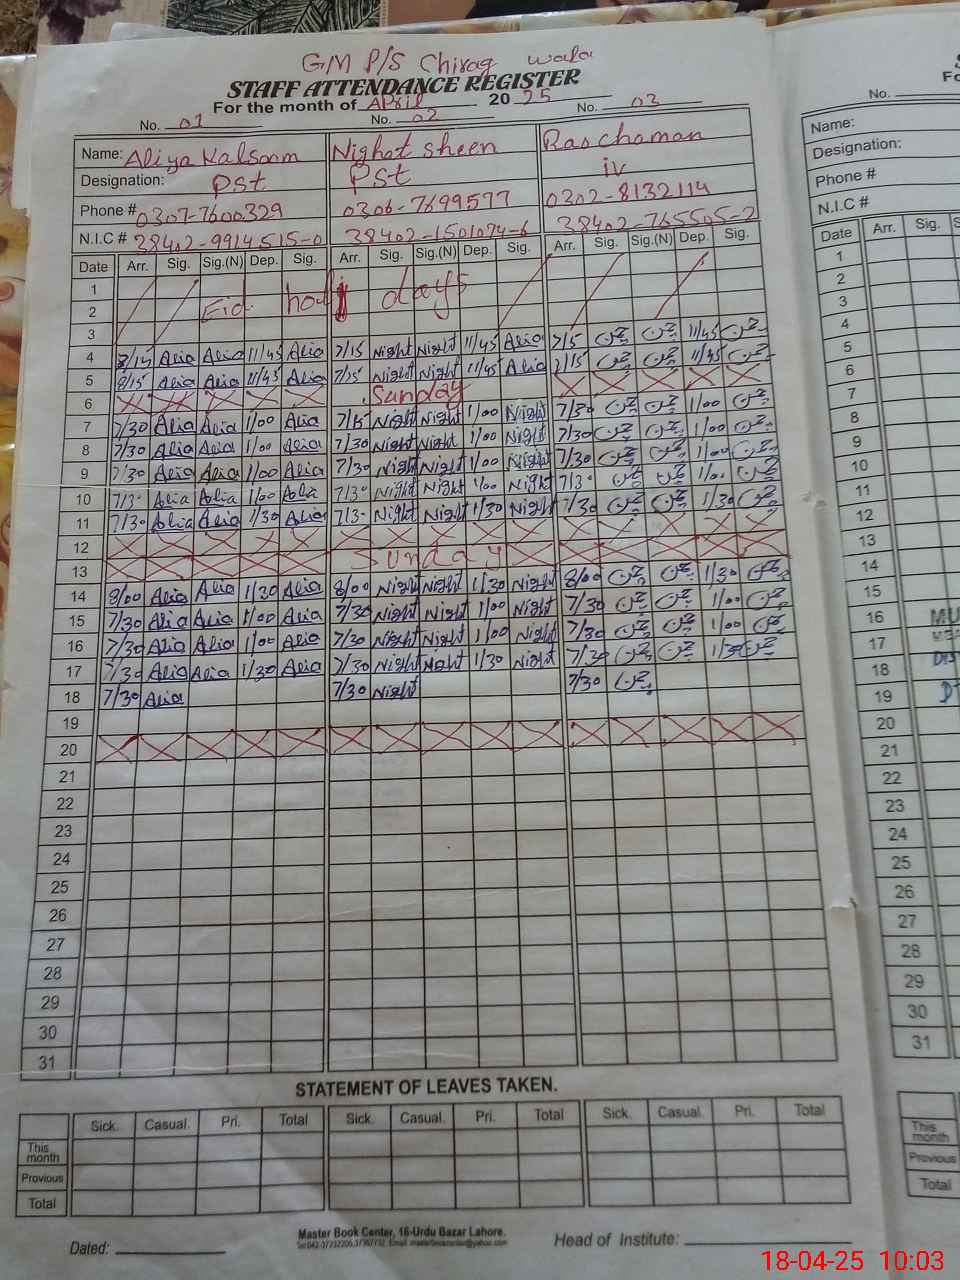 GM P/S Chirag wala
STAFF ATTENDANCE REGISTER
For the month of April 2025
No. 01 No. 02 No. 03
Name: Aliya Kalsoom Nighat sheen
Designation: Pst Pst iv
Phone # 0307-7600329 0306-7699577 0302-8132114
N.I.C # 38402-9914515-0 38402-1501074-6 38402-765505-2
Date Arr. Sig. Sig.(N) Dep. Sig. Arr. Sig. Sig.(N) Dep. Sig. Arr. Sig. Sig.(N) Dep. Sig.
1 Eid holi days
2
3
4 Alia Alia 11/45 Alia 7/15 Night Night 11/45 Alia 7/15 چمن چمن 11/45 چمن
5 8/15 Alia Alia 11/45 Alia 7/15 Night Night 11/45 Alia 7/15 چمن چمن 11/45 چمن
6 Sunday
7 7/30 Alia Alia 1/00 Alia 7/15 Night Night 1/00 Night 7/30 چمن چمن 1/00 چمن
8 7/30 Alia Alia 1/00 Alia 7/30 Night Night 1/00 Night 7/30 چمن چمن 1/00 چمن
9 7/30 Alia Alia 1/00 Alia 7/30 Night Night 1/00 Night 7/30 چمن چمن 1/00 چمن
10 7/30 Alia Alia 1/00 Alia 7/30 Night Night 1/00 Night 7/30 چمن چمن 1/00 چمن
11 7/30 Alia Alia 1/30 Alia 7/30 Night Night 1/30 Night 7/30 چمن چمن 1/30 چمن
12
13 Sunday
14 8/00 Alia Alia 1/30 Alia 8/00 Night Night 1/30 Night 8/00 چمن چمن 1/30 چمن
15 7/30 Alia Alia 1/00 Alia 7/30 Night Night 1/00 Night 7/30 چمن چمن 1/00 چمن
16 7/30 Alia Alia 1/00 Alia 7/30 Night Night 1/00 Night 7/30 چمن چمن 1/00 چمن
17 7/30 Alia Alia 1/30 Alia 7/30 Night Night 1/30 Night 7/30 چمن چمن 1/30 چمن
18 7/30 Alia 7/30 Night 7/30 چمن
19
20
21
22
23
24
25
26
27
28
29
30
31
STATEMENT OF LEAVES TAKEN.
Sick. Casual. Pri. Total Sick. Casual. Pri. Total Sick. Casual. Pri. Total
This month
Provious
Total
Master Book Center, 16-Urdu Bazar Lahore.
Dated: Head of Institute:
No.
Name:
Designation:
Phone #
N.I.C #
Date Arr. Sig.
1
2
3
4
5
6
7
8
9
10
11
12
13
14
15
16
17
18
19
20
21
22
23
24
25
26
27
28
29
30
31
This month
Provious
Total
18-04-25 10:03